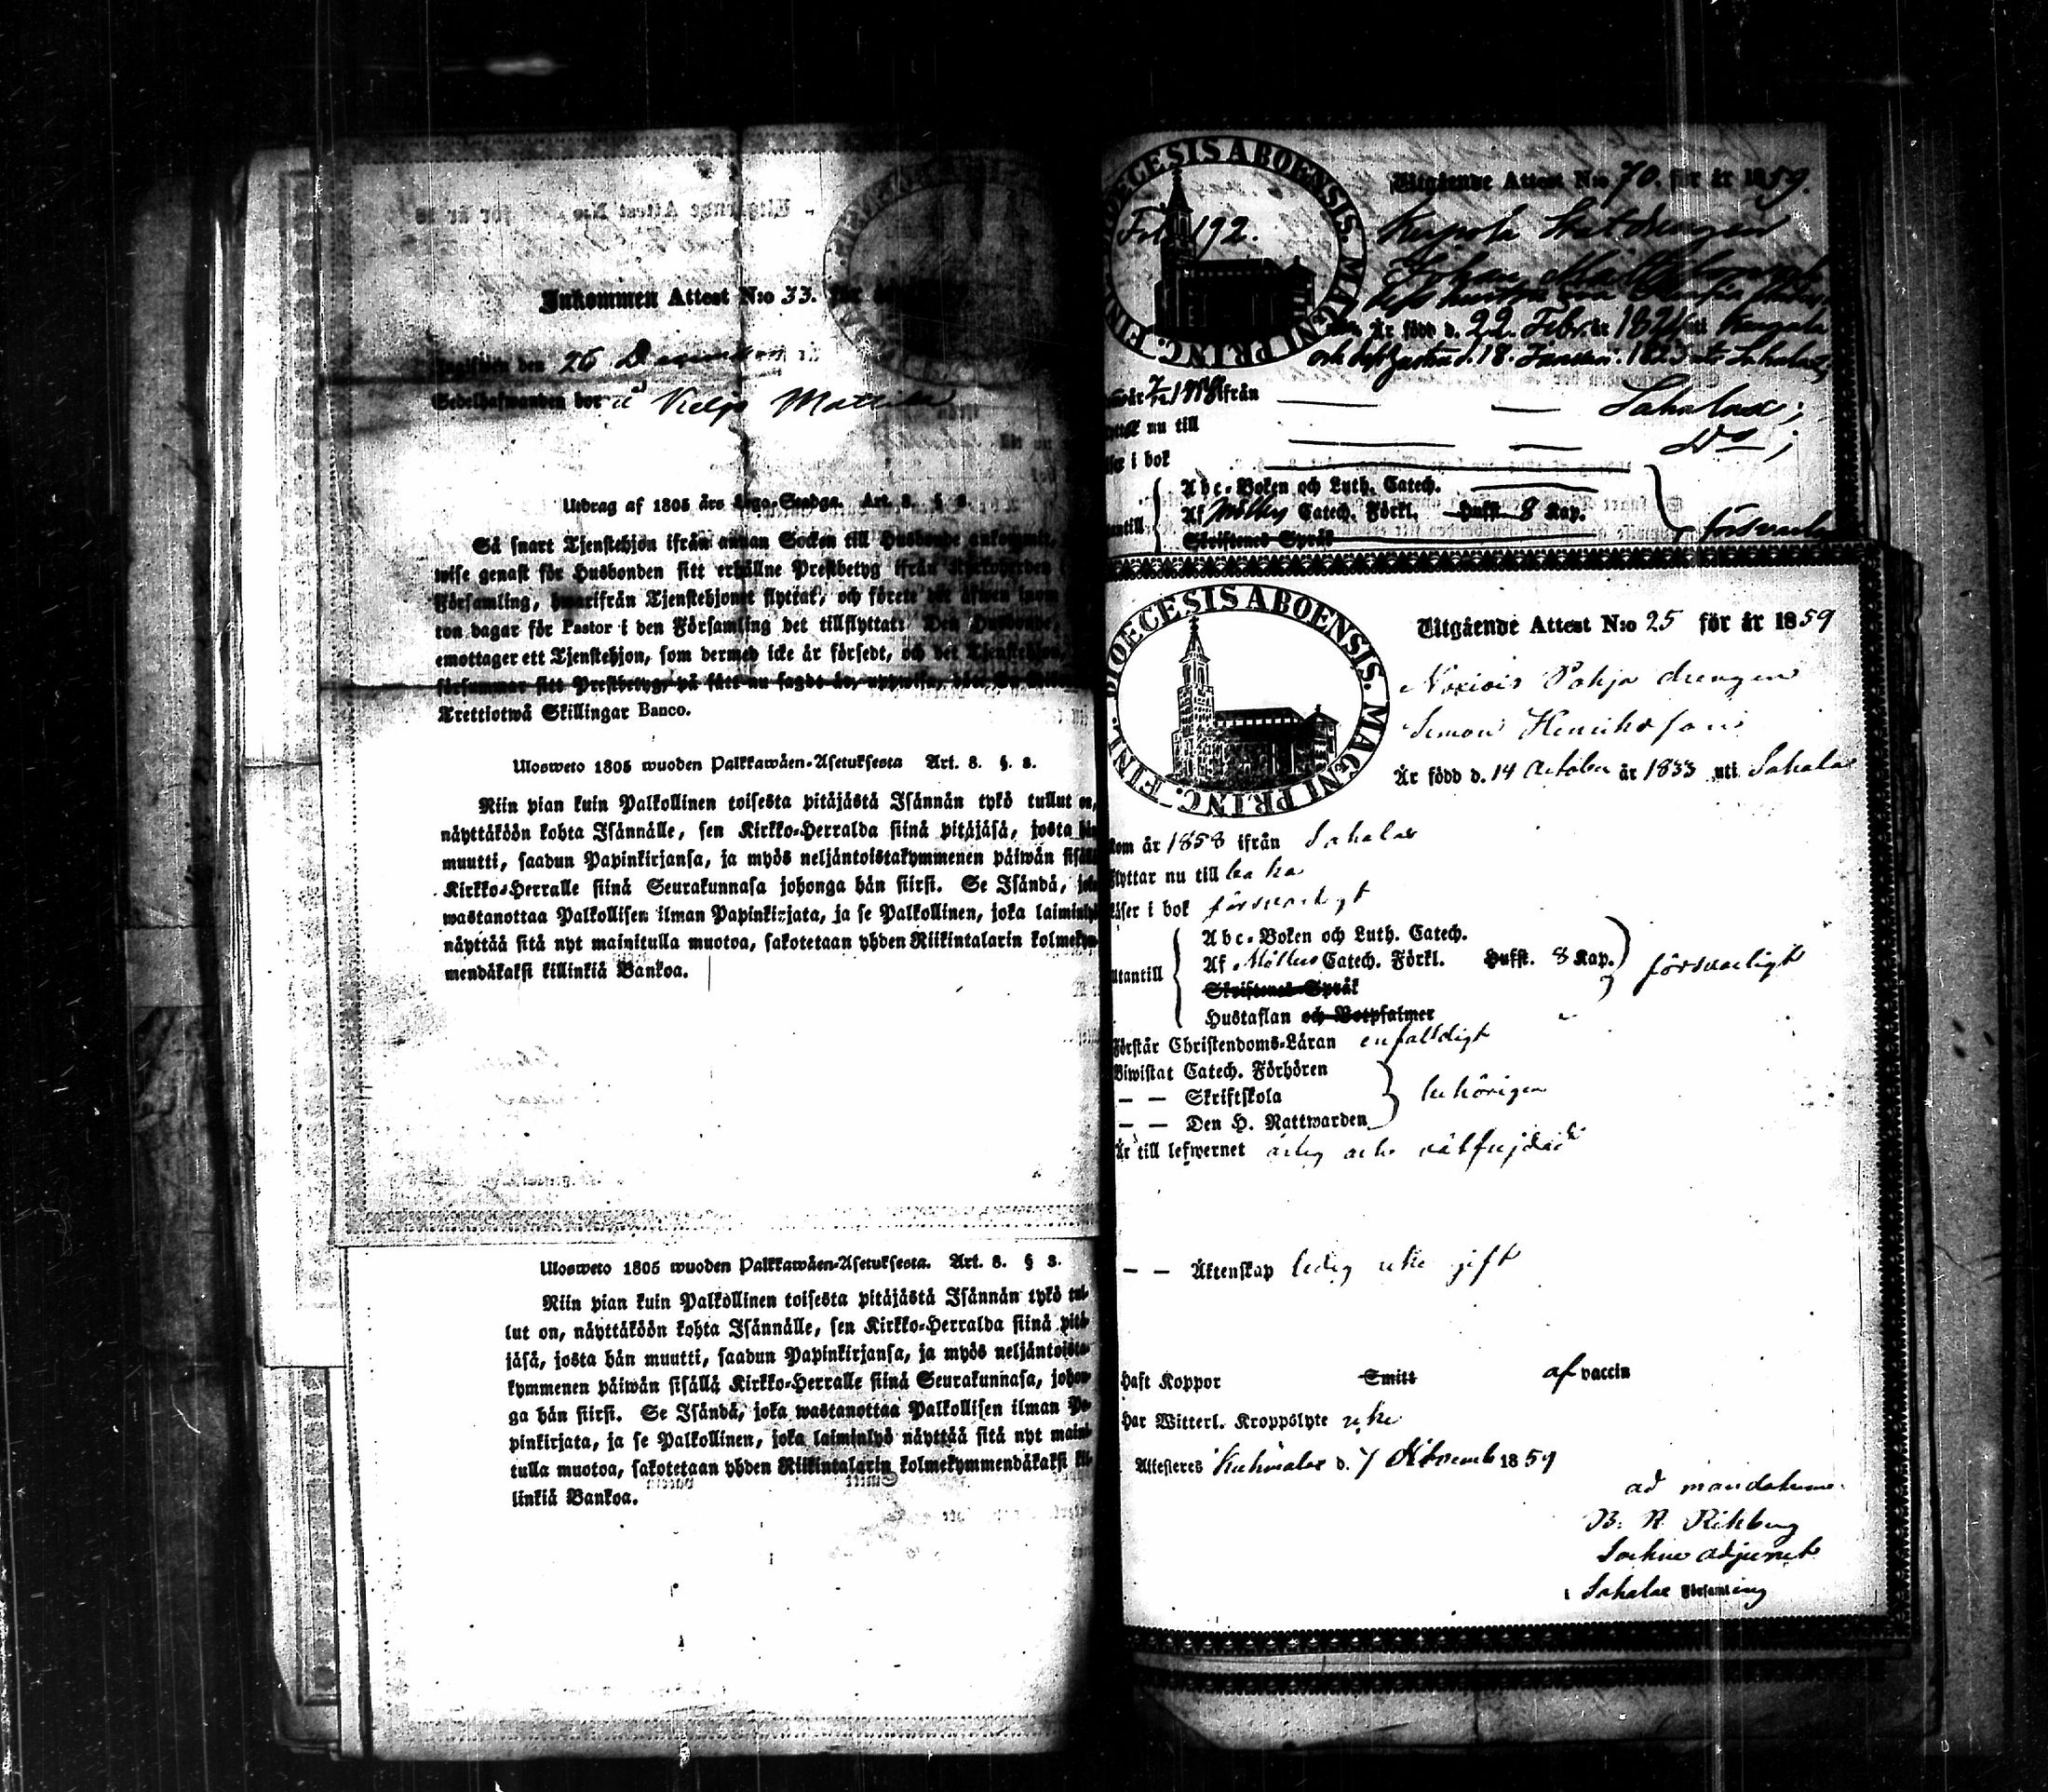 Inkommen Attest N:o 33. för år
Ingifwen den 26 December
Sedelhafwanden bor i Keljo Mattila
Utdrag af 1805 års Lego-Stadga. Art. 8. § 3.
Så snart Tjenstehjon ifrån annan Socken till Husbonde ankommit,
wise genast för Husbonden sitt erhållne Prestbetyg ifrån Kyrkoherden i
Församling, hwarifrån Tjenstehjonet flyttat, och förete det äfwen inom
ton dagar för Pastor i den Församling det tillflyttat: Den Husbonde,
emottager ett Tjenstehjon, som dermed icke är försedt, och det Tjenstehjon,
försummar sitt Prestbetyg, på sätt nu sagdt är, uppwisa,
Trettiotwå Skillingar Banco.
Ulosweto 1805 wuoden Palkkawäen-Asetuksesta Art. 8. §. 3.
Niin pian kuin Palkollinen toisesta pitäjästä Isännän tykö tullut on,
näyttäköön kohta Isännälle, sen Kirkko-Herralda siinä pitäjäsä, josta hän
muutti, saadun Papinkirjansa, ja myös neljäntoistakymmenen päiwän sisällä
Kirkko-Herralle siinä Seurakunnasa johonga hän siirsi. Se Isändä, joka
wastanottaa Palkollisen ilman Papinkirjata, ja se Palkollinen, joka laiminlyö
näyttää sitä nyt mainitulla muotoa, sakotetaan yhden Riikintalarin kolmekym-
mendäkaksi killinkiä Bankoa.
Ulosweto 1805 wuoden Palkkawäen-Asetuksesta. Art. 8. § 3.
Niin pian kuin Palkollinen toisesta pitäjästä Isännän tykö tul-
lut on, näyttäköön kohta Isännälle, sen Kirkko-Herralda siinä pitä-
jäsä, josta hän muutti, saadun Papinkirjansa, ja myös neljäntoista-
kymmenen päiwän sisällä Kirkko-Herralle siinä Seurakunnasa, johon-
ga hän siirsi. Se Isändä, joka wastanottaa Palkollisen ilman Pa-
pinkirjata, ja se Palkollinen, joka laiminlyö näyttää sitä nyt maini-
tulla muotoa, sakotetaan yhden Riikintalarin kolmekymmendäkaksi kil-
linkiä Bankoa.
DIOECESIS ABOENSIS. MAGNI PRINC. FINL.
Fol. 192.
Utgående Attest N:o 70. för år 1859.
Johan
Är född d. 22. Febr. år 1821 uti
och d. 18. Januari 1823 uti Sahalax
ifrån Sahalax;
nu till Do;
i bok
Abc-Boken och Luth. Catech.
Af Möllers Catech. Förkl. Hufst. 8 Kap.
Skriftenes Språk
försvarl
DIOECESIS ABOENSIS. MAGNI PRINC. FINL.
Utgående Attest N:o 25 för år 1859
Pohja drengen
Simon Henriksson
Är född d. 14 October år 1833 uti Sahalax
kom år 1858 ifrån Sahalax
flyttar nu till
läser i bok försvarligt
Utantill
Abc-Boken och Luth. Catech.
Af Möllers Catech. Förkl. Hufst. 8 Kap.
Skriftenes Språk
Hustaflan och Botpsalmer
försvarligt
Förstår Christendoms-Läran enfaldigt
Biwistat Catech. Förhören
— — Skriftskola
— — Den H. Nattwarden
behörigen
Är till lefwernet ärlig och välfrejdad
— — Äktenskap ledig icke gift
Haft Koppor Smitt af vaccin
Har Witterl. Kroppslyte icke
Attesteres Kuhmalax d. 7 November 1859
ad mandatum
B. R. Rikberg
Sockne adjunct
i Sahalax Församling